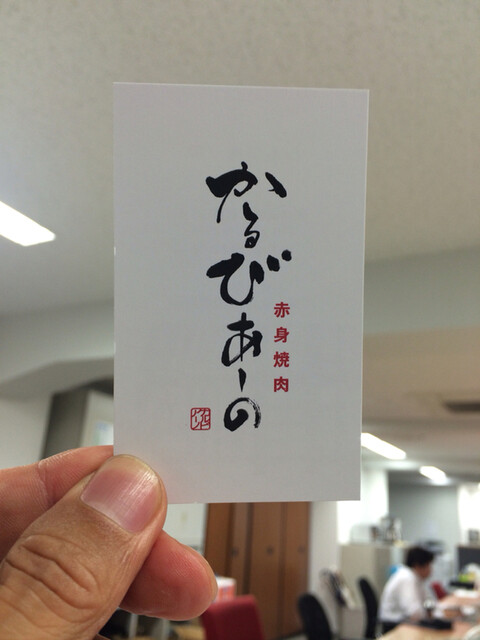 赤身焼肉
かるびあーの